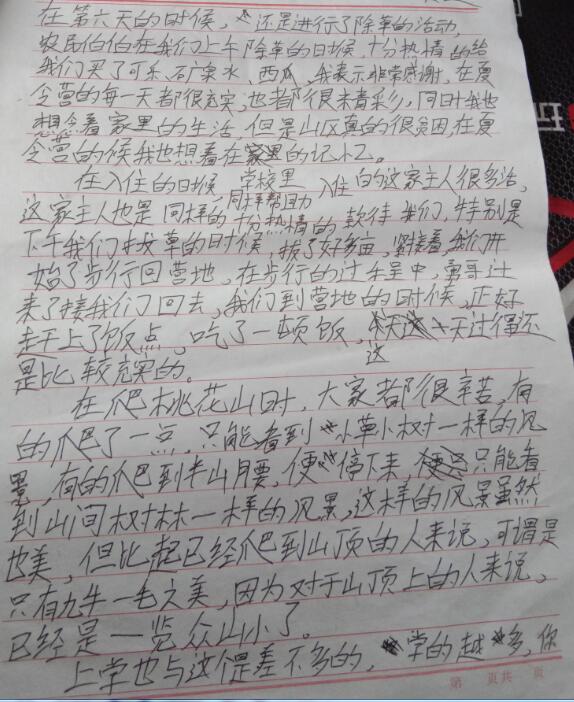 在第六天的时候，还是进行了除草的活动，
农民伯伯在我们上午除草的时候，十分热情的给
我们买了可乐、矿泉水、西瓜，我表示非常感谢，在夏
令营的每一天都很充实，也都很精彩，同时我也
想念着家里的生活，但是山区真的很贫困，在夏
令营的候我也想着在家里的记忆。
在入住的时候，学校里入住的这家主人很多治，
同样帮助
这家主人也是同样的十分热情的款待我们，特别是
下午我们拔草的时候，拔了好多亩，紧接着，我们开
始了步行回营地，在步行的过程中，勇哥过
来了接我们回去，我们到营地的时候，正好
赶上了饭点，吃了一顿饭，这一天过得还
是比较充实的。
在爬桃花山时，大家都很辛苦，有
的爬了一点，只能看到小草小树一样的风
景，有的爬到半山腰，便停下来，只能看
到山间树林一样的风景，这样的风景虽然
也美，但比起已经爬到山顶的人来说，可谓是
只有九牛一毛之美，因为对于山顶上的人来说，
已经是一览众山小了。
上学也与这个是差不多的，学的越多，你
第 页共 页